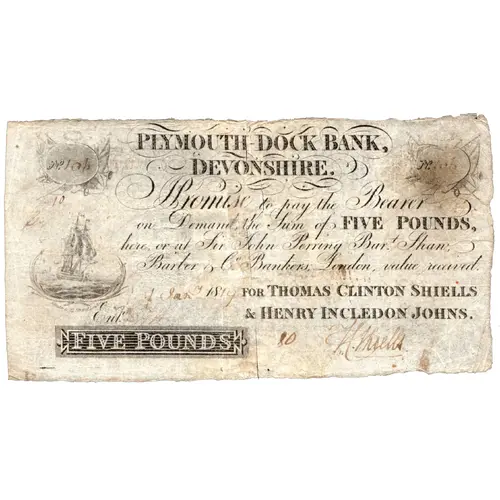 PLYMOUTH-DOCK BANK,
DEVONSHIRE.
I Promise to pay the Bearer
on Demand the Sum of FIVE POUNDS,
here, or at Sir John Perring Bar.t Shaw,
Barber & Co. Bankers, London, value received.
FOR THOMAS CLINTON SHIELLS
& HENRY INCLEDON JOHNS.
Ent.d
FIVE POUNDS